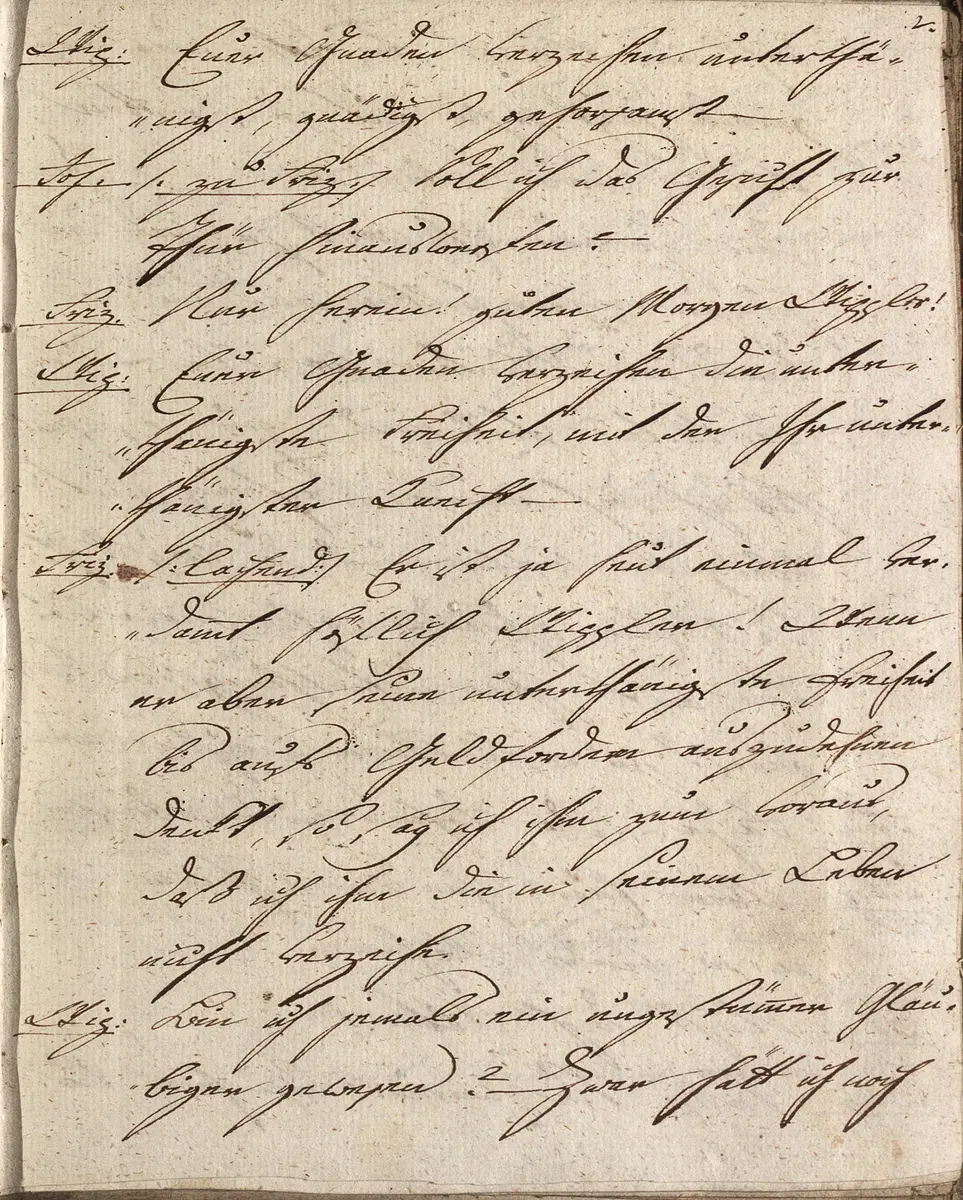 2.
Wip: Euer Gnaden verzeihen unterthä-
"nigst, gnädigst, gehorsamst —
Joh. /: zu Friz :/ Soll ich das Gesicht zur
Thür hinauswerfen? —
Friz. Nur herein! guten Morgen Wippler!
Wip: Euer Gnaden verzeihen die unter-
"thänigste Freiheit, mit der Ihr unter-
"thänigster Knecht —
Friz. /: lachend :/ Er ist ja heut einmal ver-
"damt höflich Wippler! Wenn
er aber seine unterthänigste Freiheit
bis aufs Geldfordern auszudehnen
denkt, so sag ich ihm zum voraus,
daß ich ihm die in seinem Leben
nicht verzeihe.
Wip: Bin ich jemals ein ungestümer Gläu-
biger gewesen? — Zwar hätt ich noch